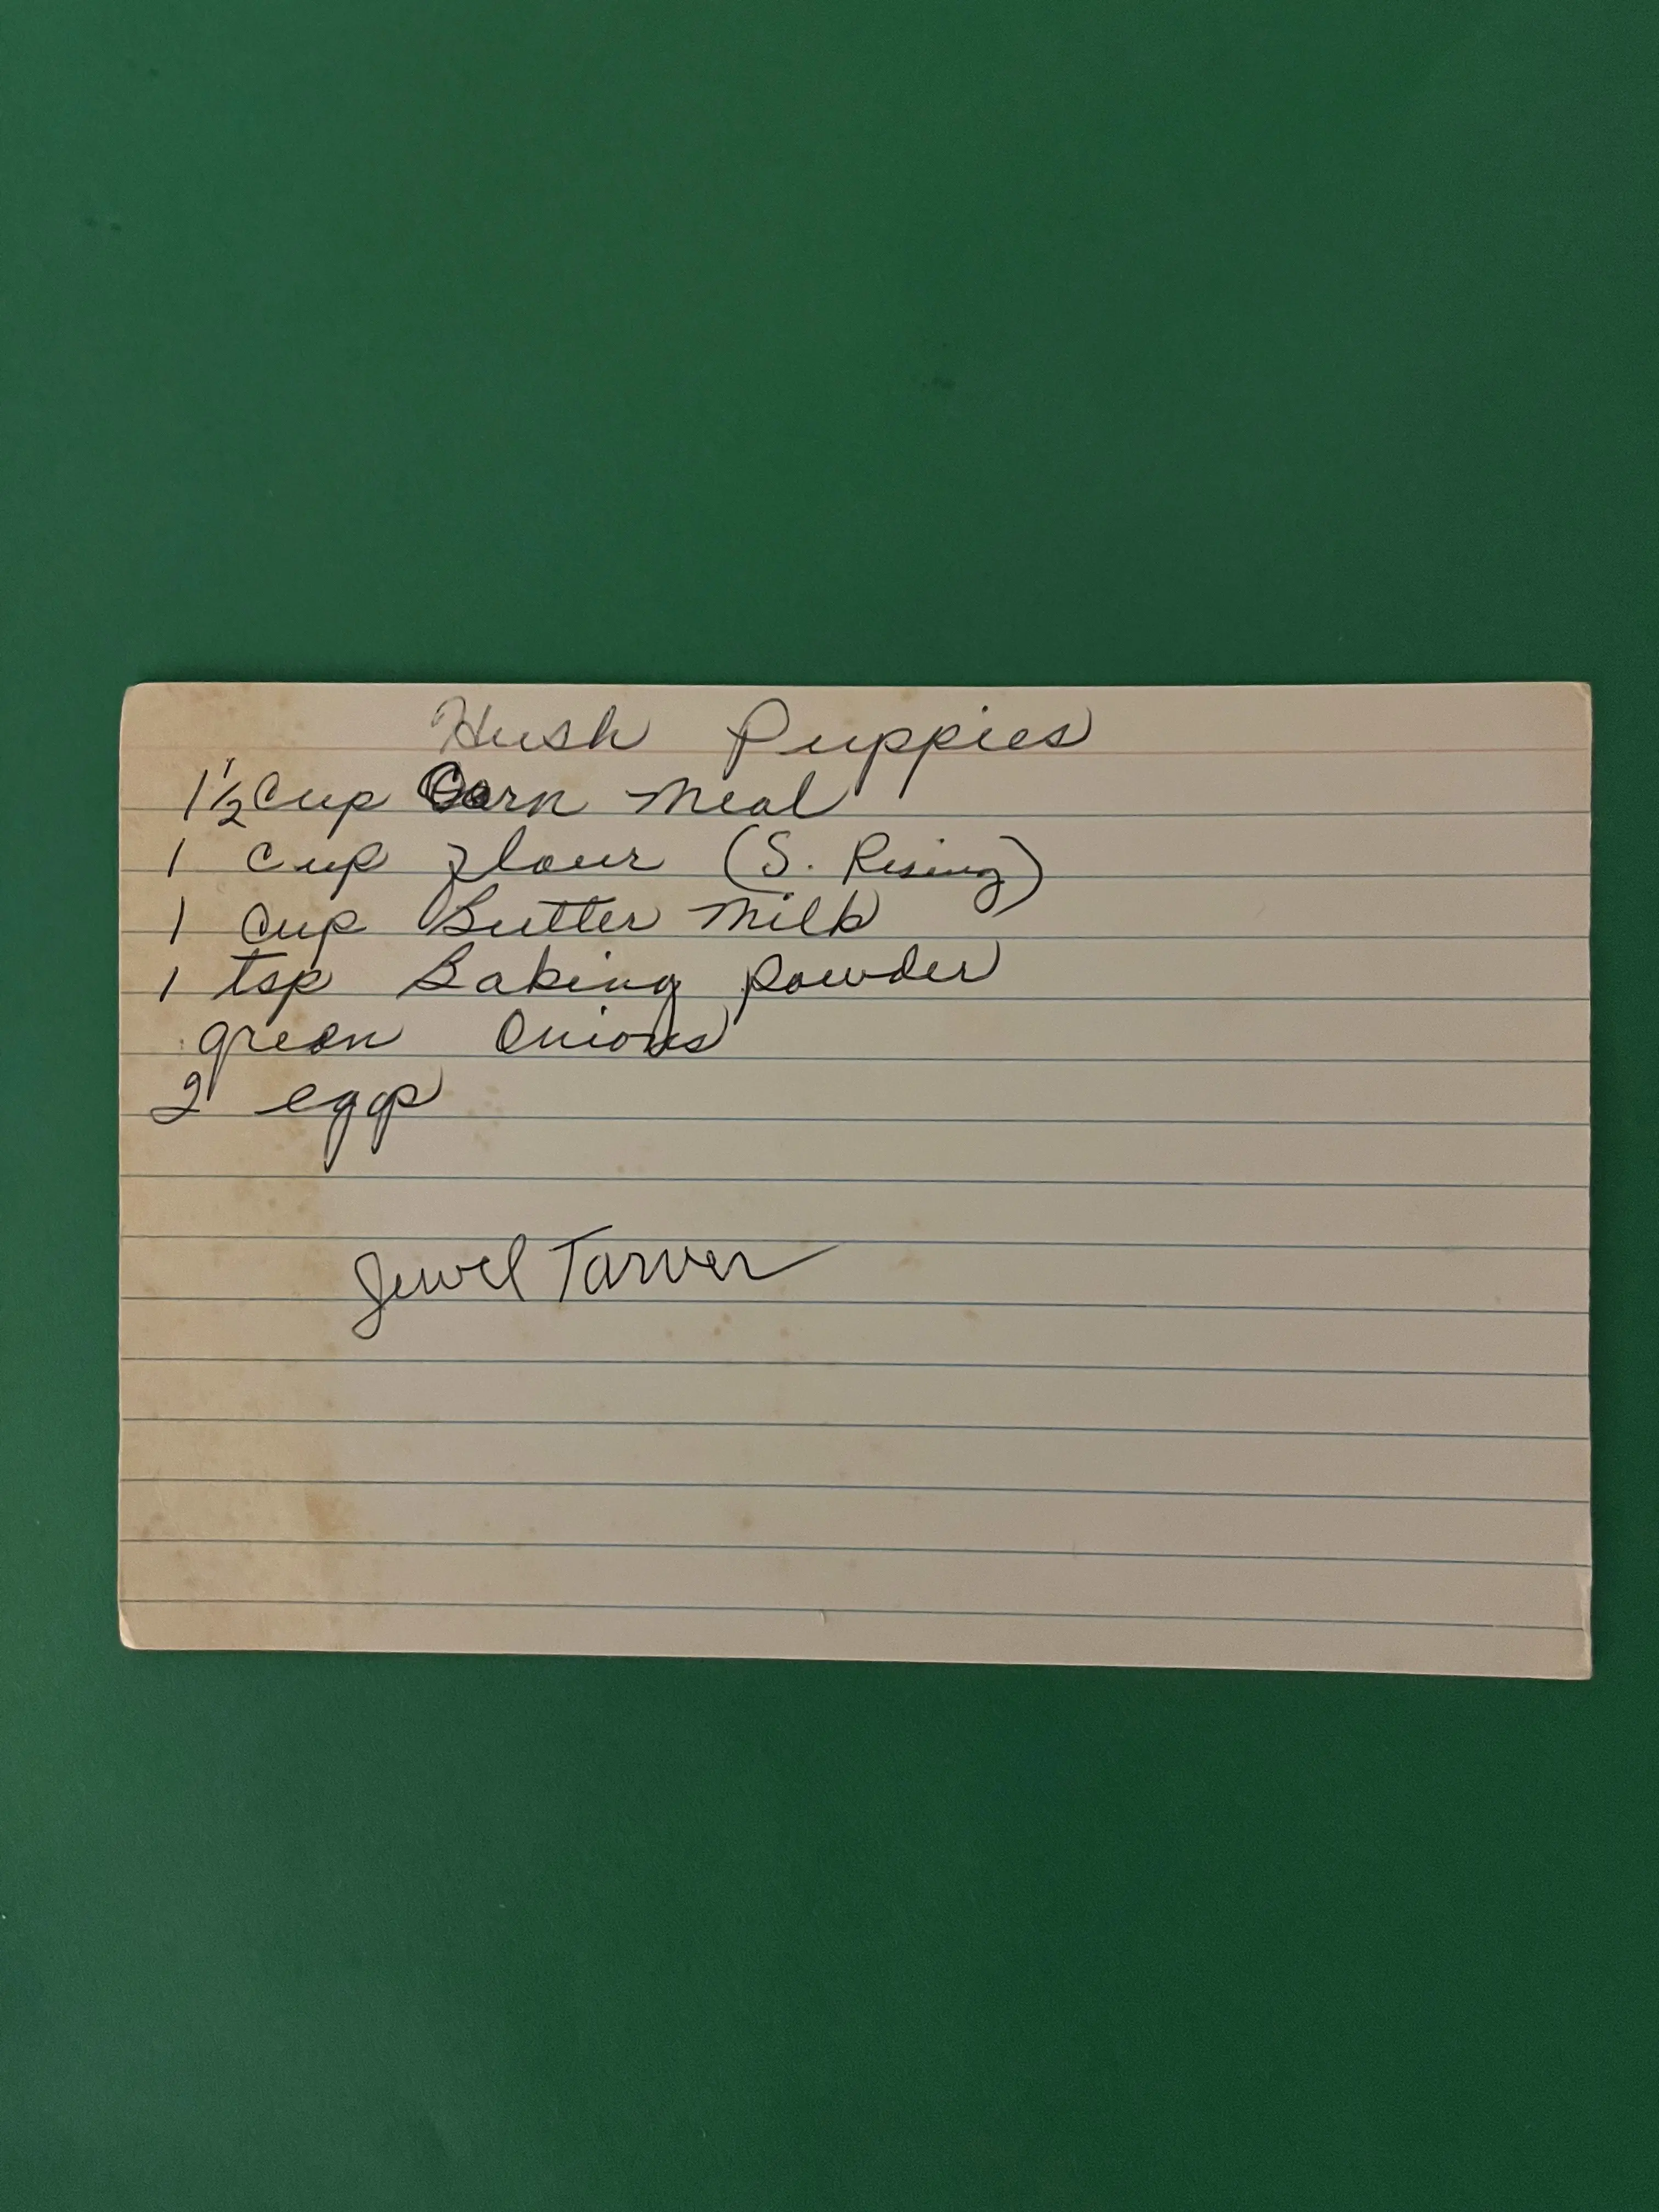 Hush Puppies
1 1/2 Cup Corn Meal
1 Cup flour (S. Rising)
1 Cup Butter Milk
1 tsp Baking Powder
green Onions
2 eggs
Jewel Tarver